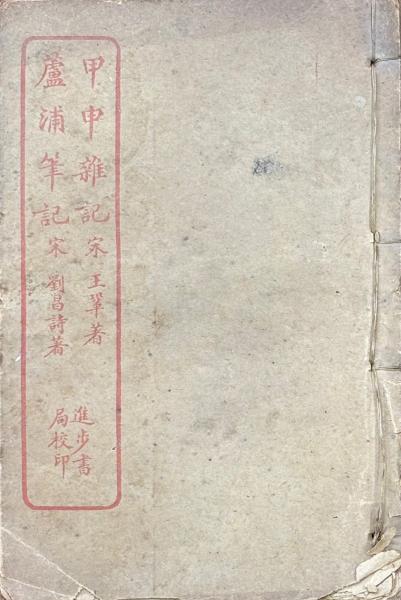 甲申雜記 宋 王鞏著
蘆浦筆記 宋 劉昌詩著
進步書
局校印